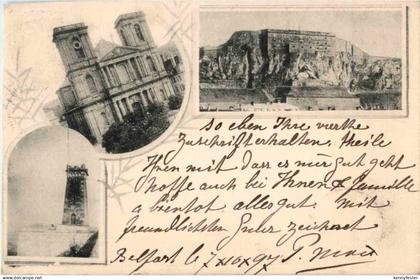 so eben Ihre werthe
Zuschrift erhalten. theile
Ihnen mit dass es mir gut geht
hoffe auch bei Ihnen & famille
a bientot alles gut. Mit
freundlichsten zeichnet
Belfort le 7 x 97
delcampe.net
kennyfester